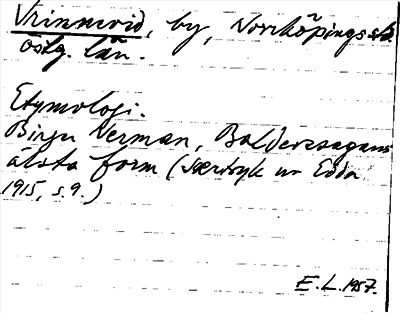 Vrinnevid, by, Norrköpings sk
östg. län.
Etymologi.
Birger Nerman, Baldersagans
älsta form (Særtryk ur Edda
1915, s. 9.)
E. L. 1957.